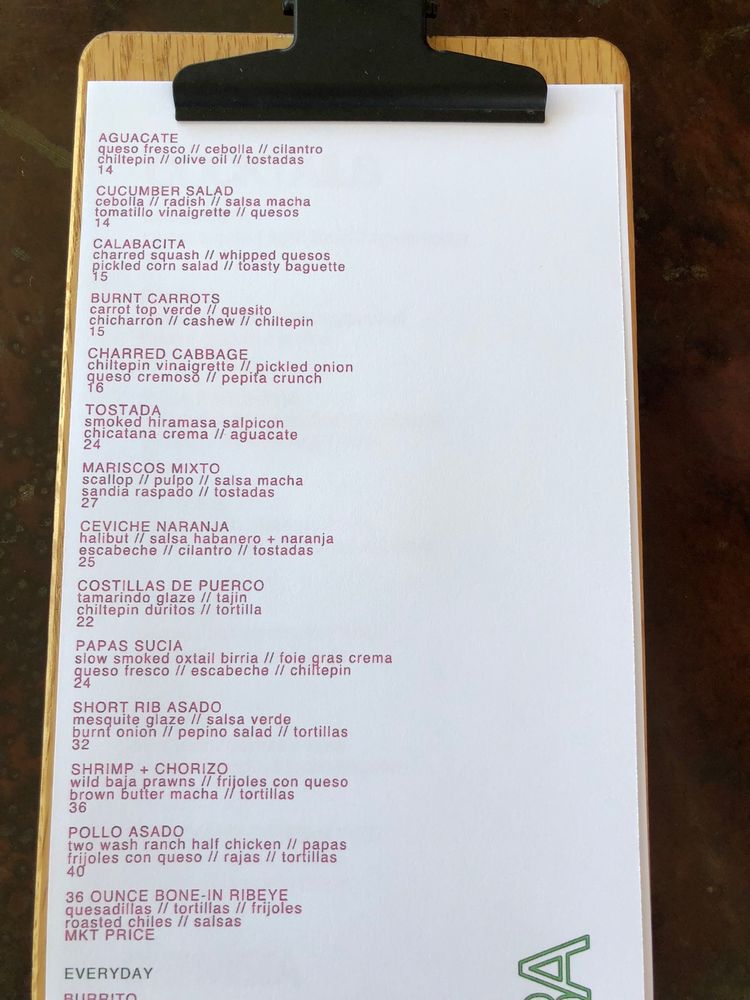 AGUACATE
queso fresco // cebolla // cilantro
chiltepin // olive oil // tostadas
14
CUCUMBER SALAD
cebolla // radish // salsa macha
tomatillo vinaigrette // quesos
14
CALABACITA
charred squash // whipped quesos
pickled corn salad // toasty baguette
15
BURNT CARROTS
carrot top verde // quesito
chicharron // cashew // chiltepin
15
CHARRED CABBAGE
chiltepin vinaigrette // pickled onion
queso cremoso // pepita crunch
16
TOSTADA
smoked hiramasa salpicon
chicatana crema // aguacate
24
MARISCOS MIXTO
scallop // pulpo // salsa macha
sandia raspado // tostadas
27
CEVICHE NARANJA
halibut // salsa habanero + naranja
escabeche // cilantro // tostadas
25
COSTILLAS DE PUERCO
tamarindo glaze // tajin
chiltepin duritos // tortilla
22
PAPAS SUCIA
slow smoked oxtail birria // foie gras crema
queso fresco // escabeche // chiltepin
24
SHORT RIB ASADO
mesquite glaze // salsa verde
burnt onion // pepino salad // tortillas
32
SHRIMP + CHORIZO
wild baja prawns // frijoles con queso
brown butter macha // tortillas
36
POLLO ASADO
two wash ranch half chicken // papas
frijoles con queso // rajas // tortillas
40
36 OUNCE BONE-IN RIBEYE
quesadillas // tortillas // frijoles
roasted chiles // salsas
MKT PRICE
EVERYDAY
BURRITO
BA